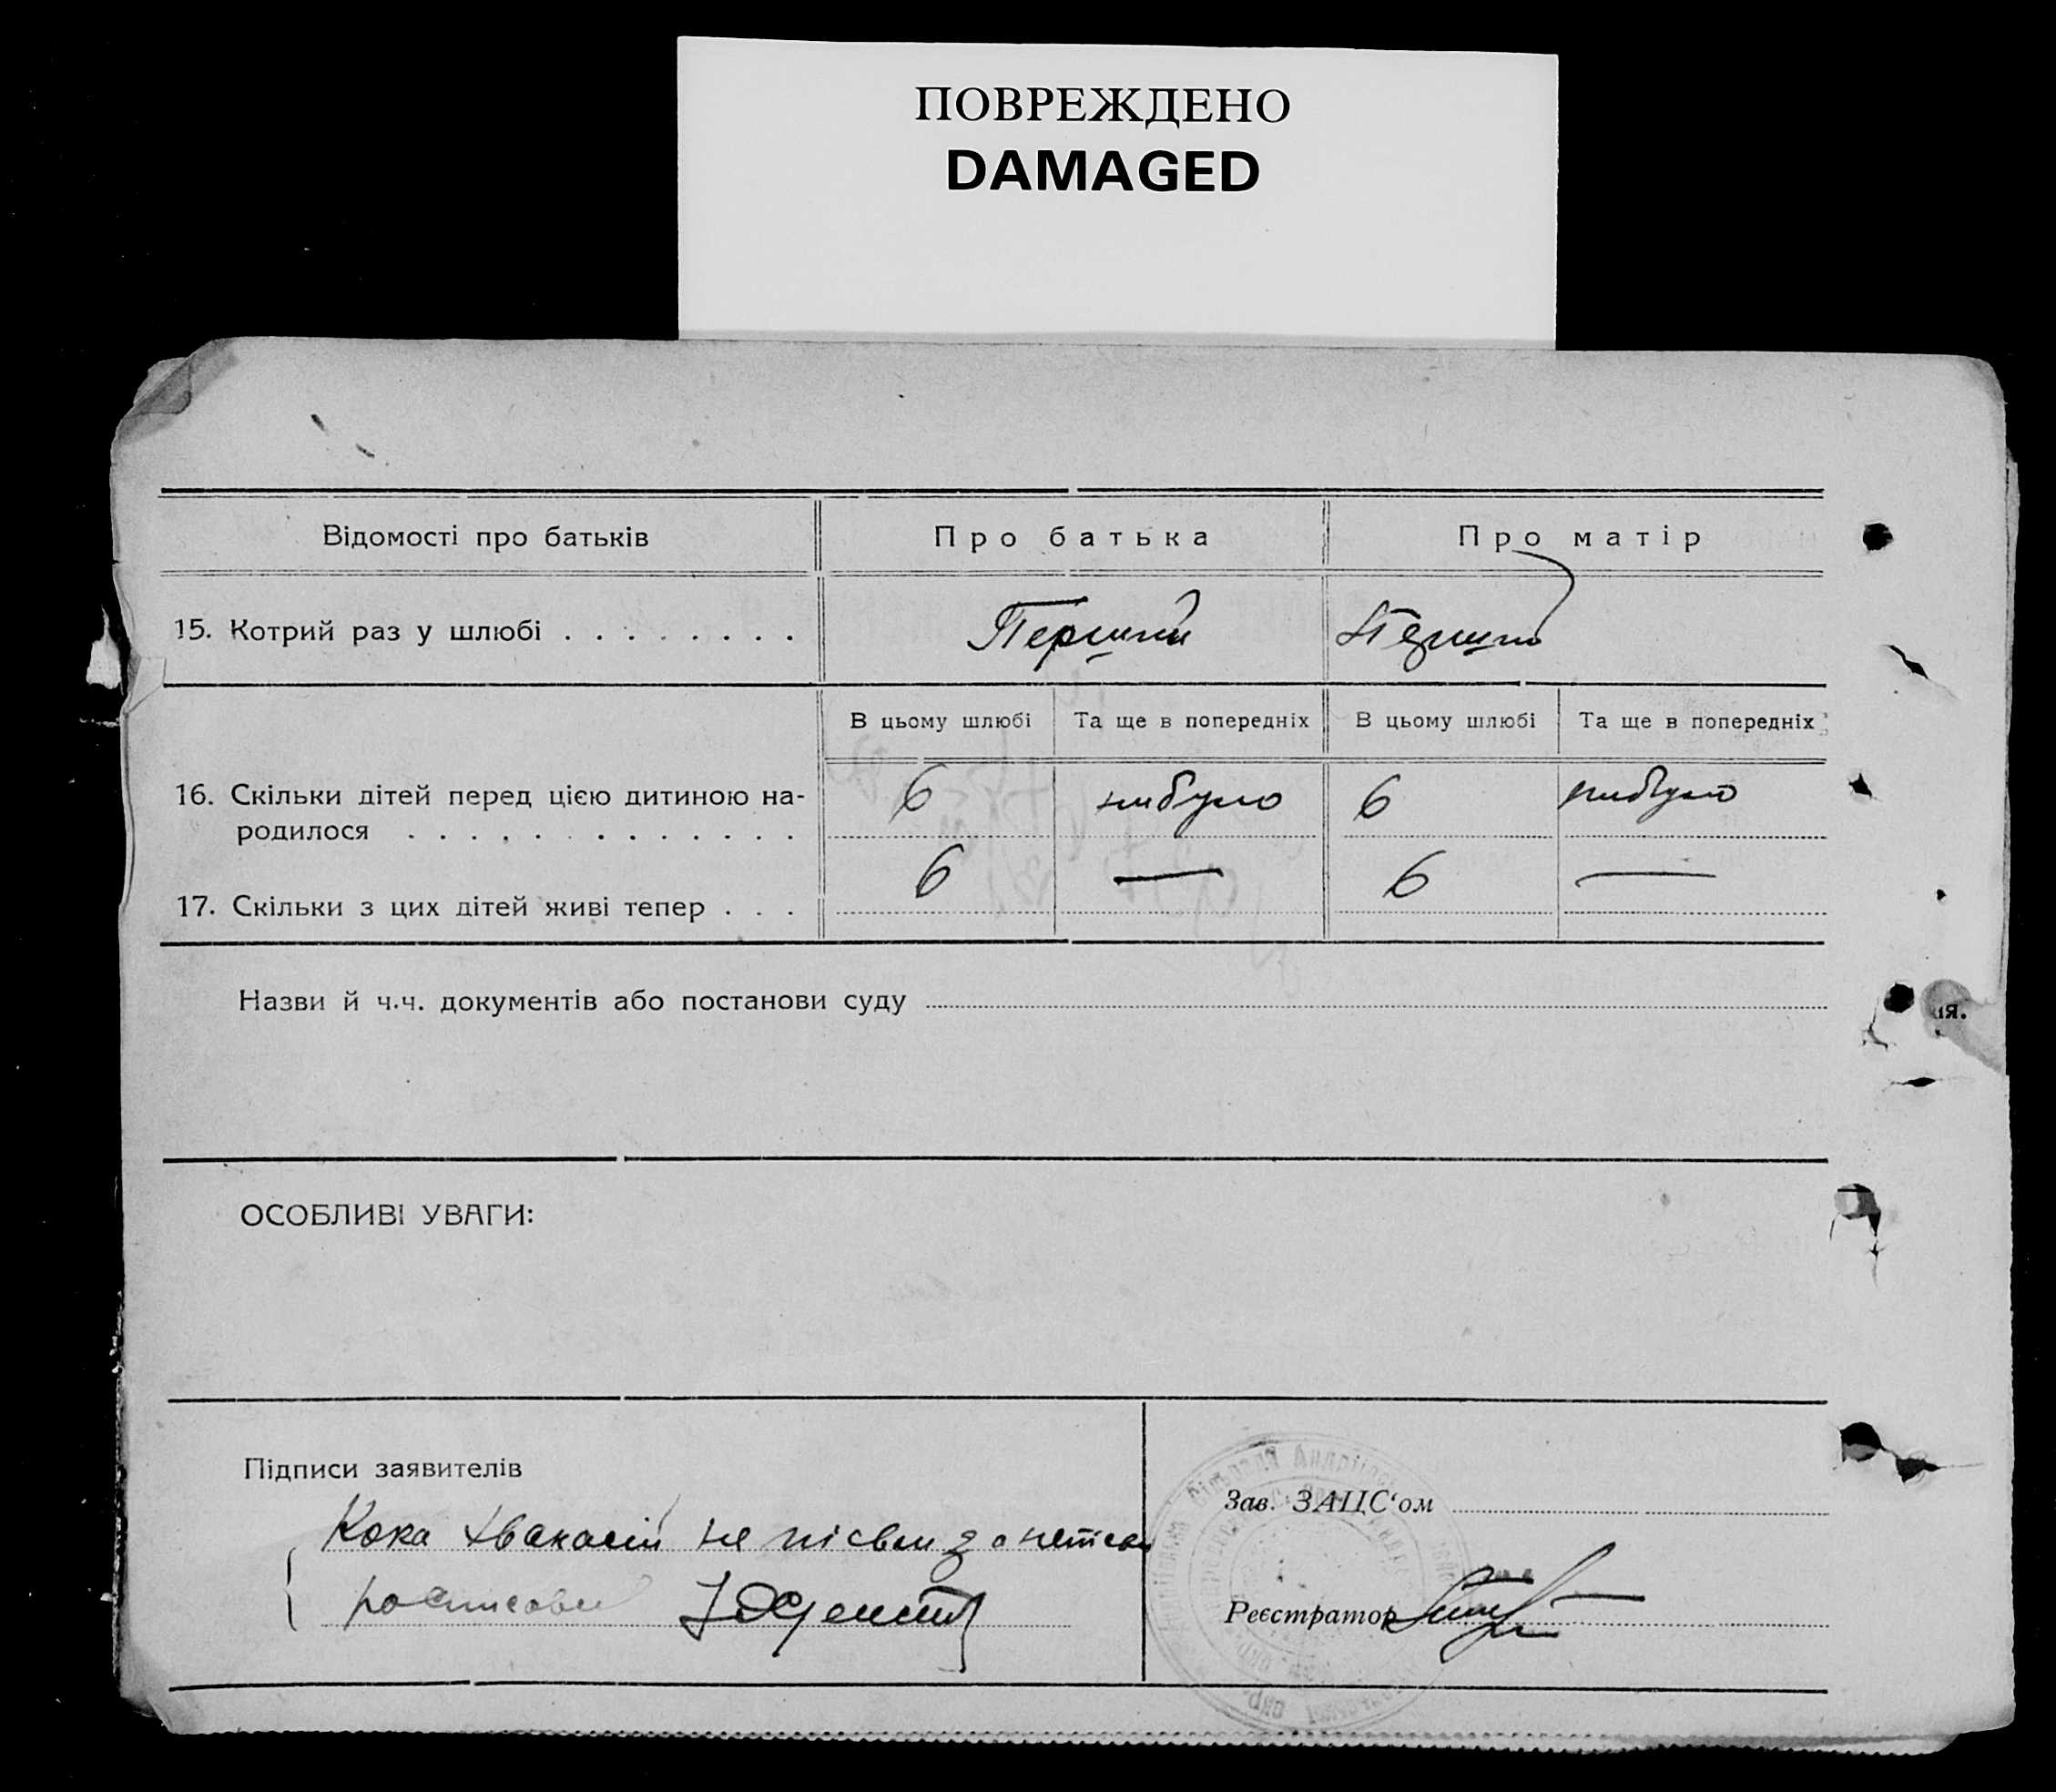 ПОВРЕЖДЕНО
DAMAGED
Відомості про батьків
Про батька
Про матір
15. Котрий раз у шлюбі . . . . . . . .
Перший
Перший
В цьому шлюбі
Та ще в попередніх
В цьому шлюбі
Та ще в попередніх
16. Скільки дітей перед цією дитиною на-
родилося . . . . . . . . . . . . .
6
нибуло
6
нибуло
17. Скільки з цих дітей живі тепер . . .
6
—
6
—
Назви й ч.ч. документів або постанови суду
ія.
ОСОБЛИВІ УВАГИ:
Підписи заявителів
Кока не
Зав. ЗАЦС‘ом
Реєстратор